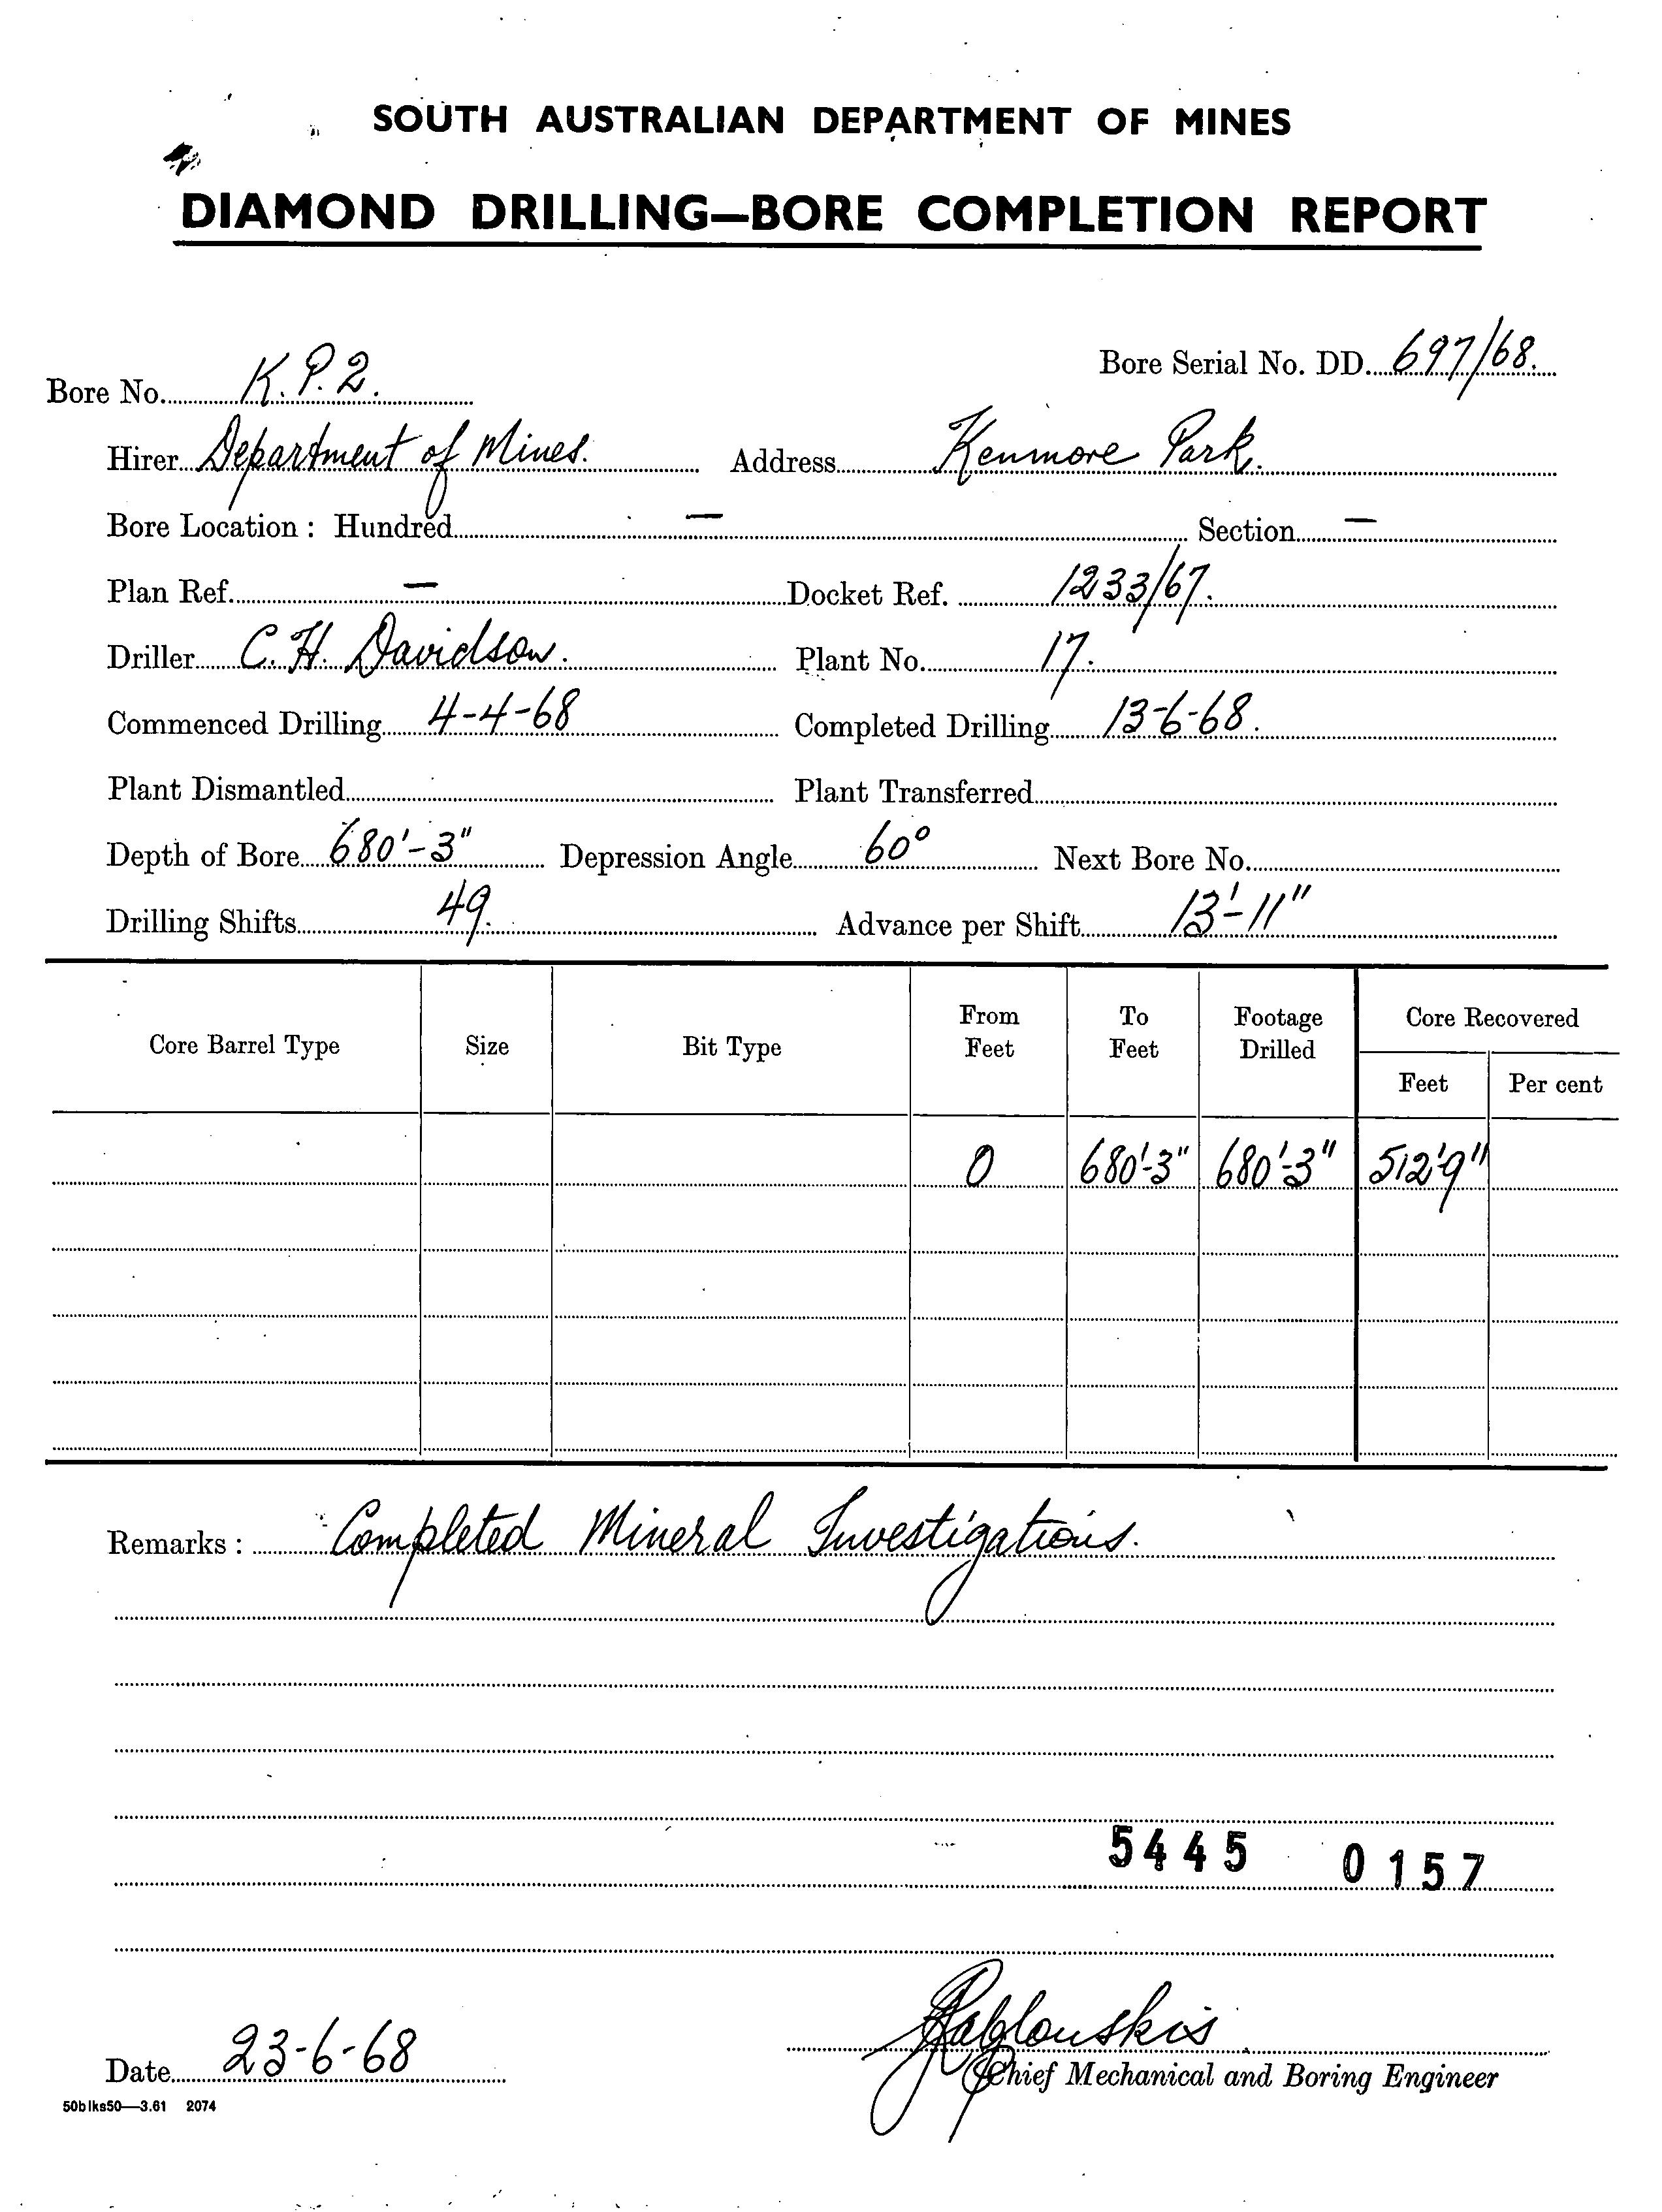 SOUTH AUSTRALIAN DEPARTMENT OF MINES
DIAMOND DRILLING—BORE COMPLETION REPORT
Bore Serial No. DD. 697/68.
Bore No. K.P.2.
Hirer Department of Mines. Address Kenmore Park.
Bore Location : Hundred — Section —
Plan Ref. — Docket Ref. 1233/67.
Driller C.H. Davidson. Plant No. 17.
Commenced Drilling 4-4-68 Completed Drilling 13-6-68.
Plant Dismantled Plant Transferred
Depth of Bore 680'-3" Depression Angle 60° Next Bore No.
Drilling Shifts 49. Advance per Shift 13'-11"
Core Barrel Type Size Bit Type From Feet To Feet Footage Drilled Core Recovered
Feet Per cent
0 680'-3" 680'-3" 512'9"
Remarks : Completed Mineral Investigations.
5445 0157
Date 23-6-68
Chief Mechanical and Boring Engineer
50blks50—3.61 2074